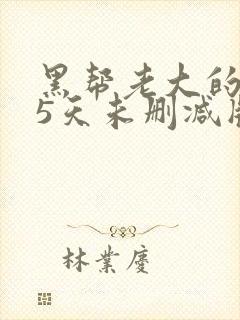 黑帮老大的
5天未删减版
林業慶